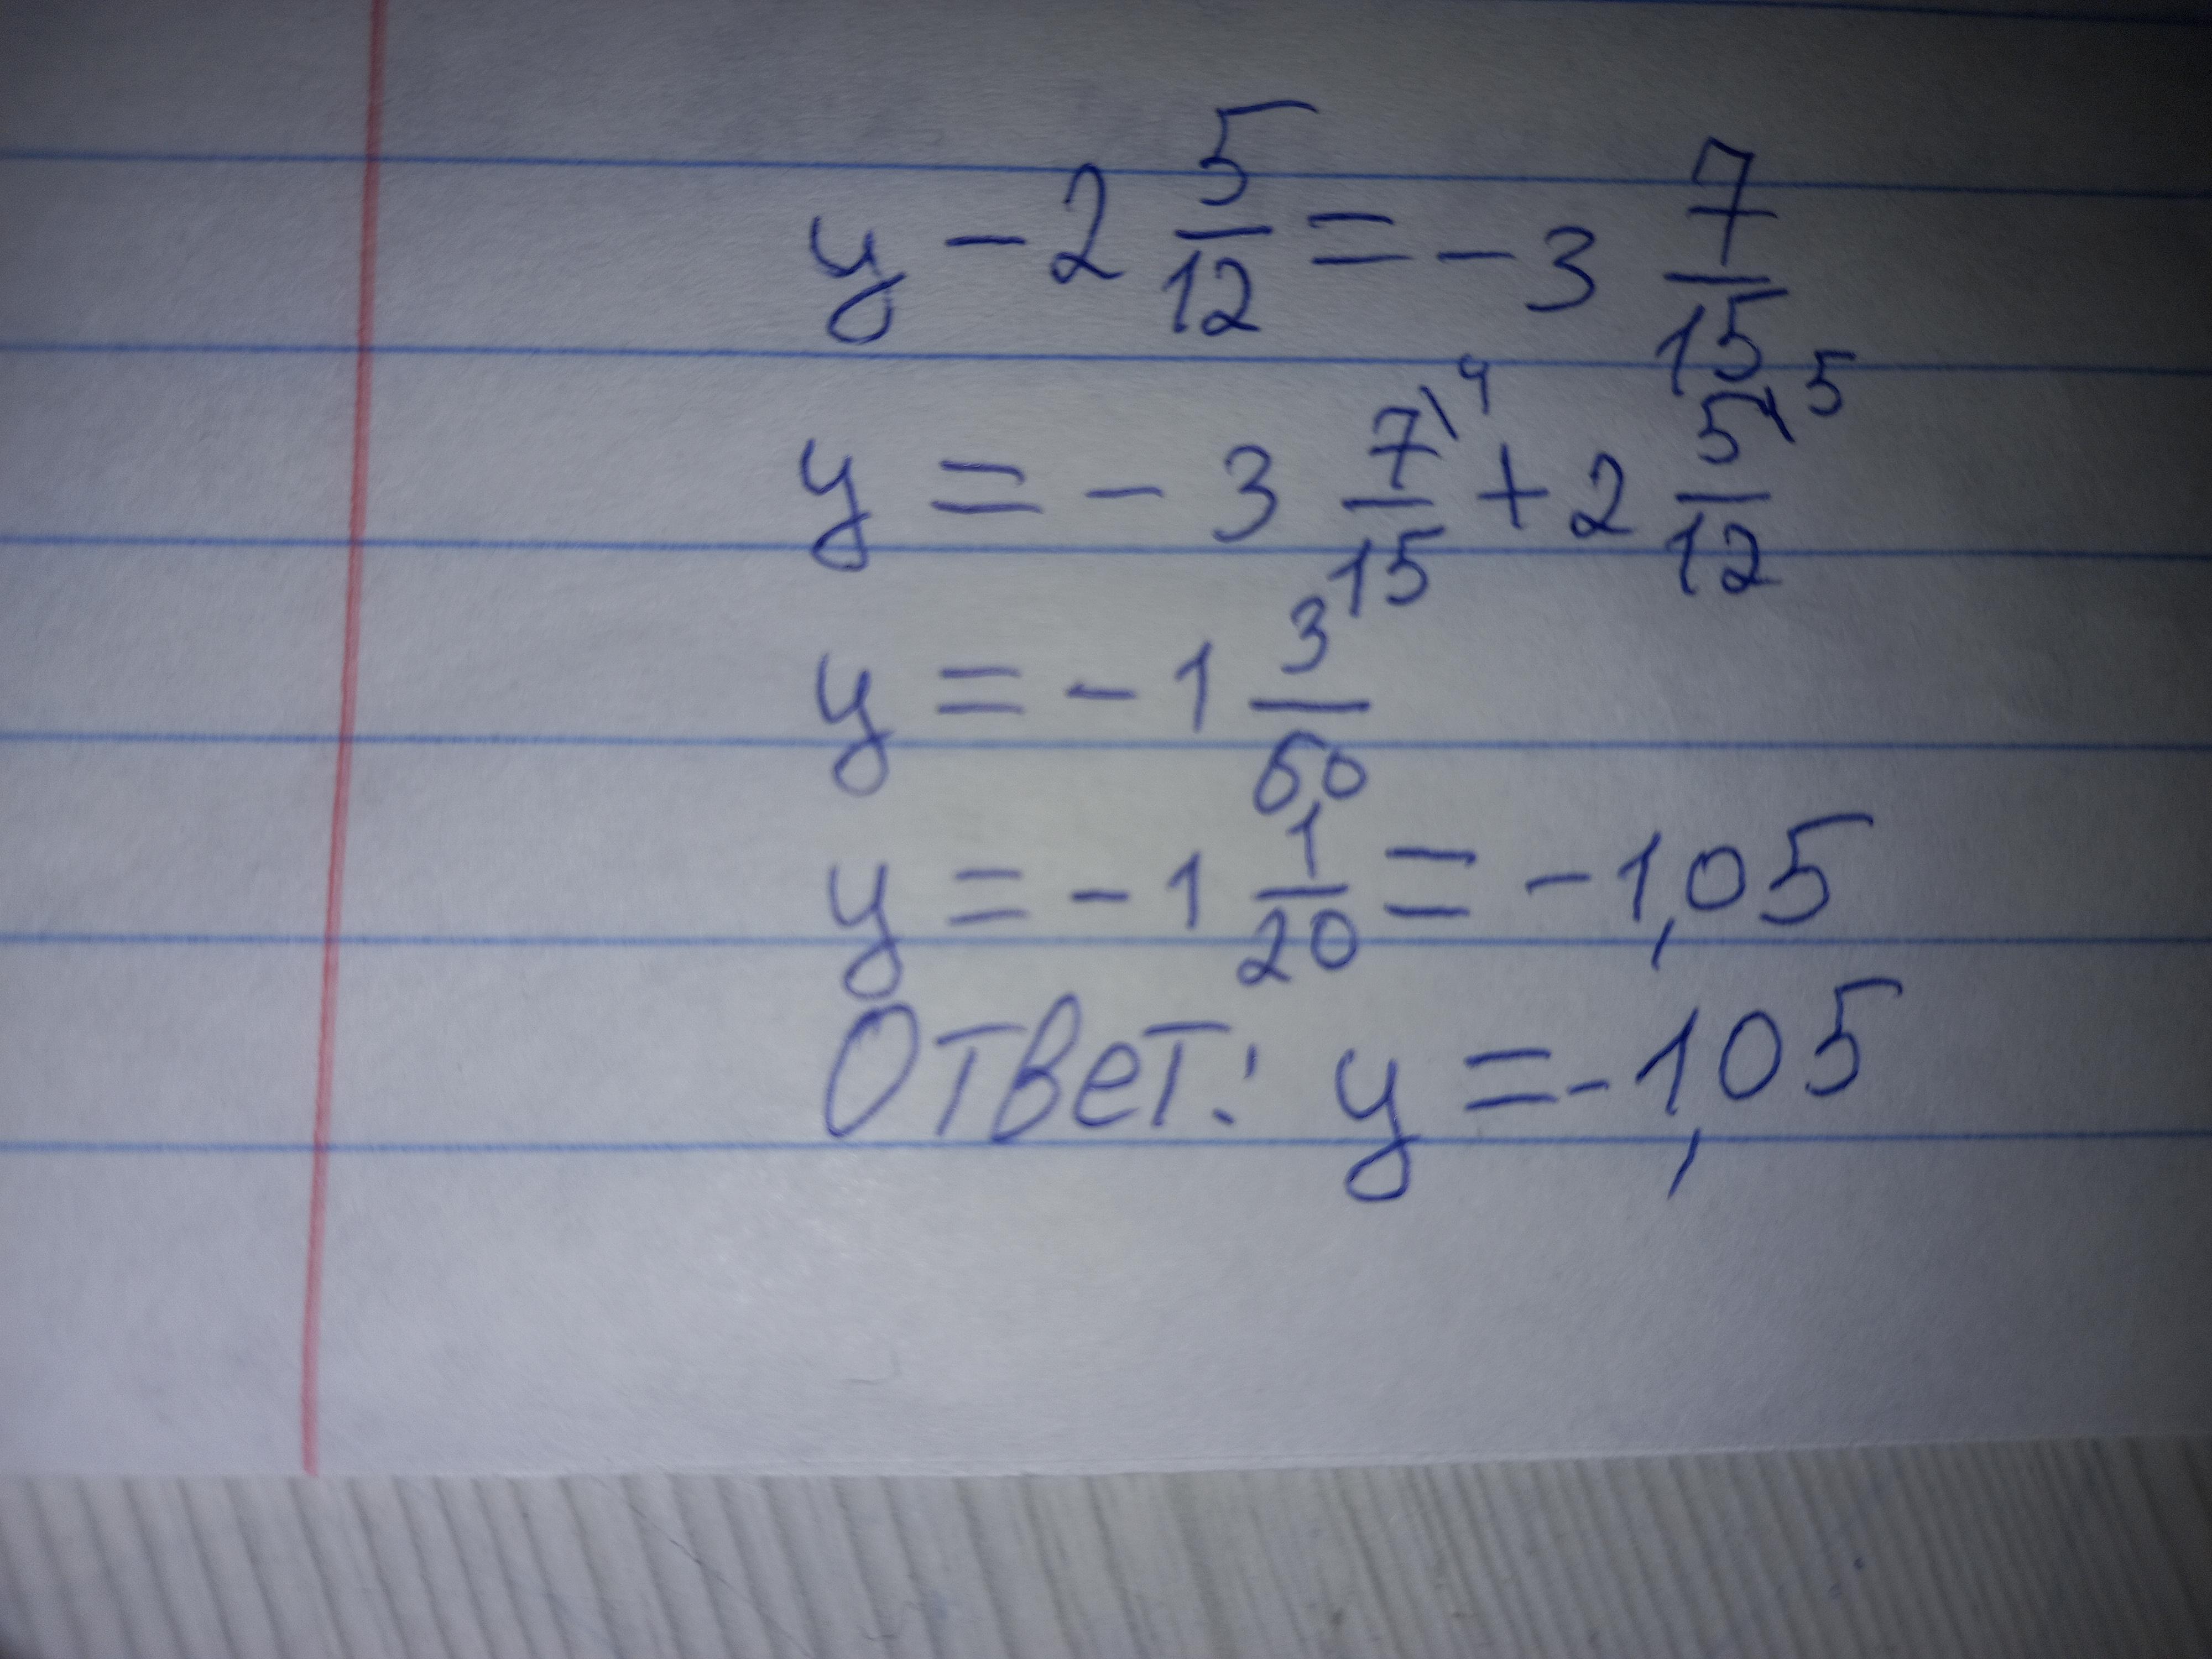 y - 2 5/12 = - 3 7/15
y = - 3 7\4/15 + 2 5\5/12
y = - 1 3/60
y = - 1 1/20 = - 1,05
Ответ: y = - 1,05